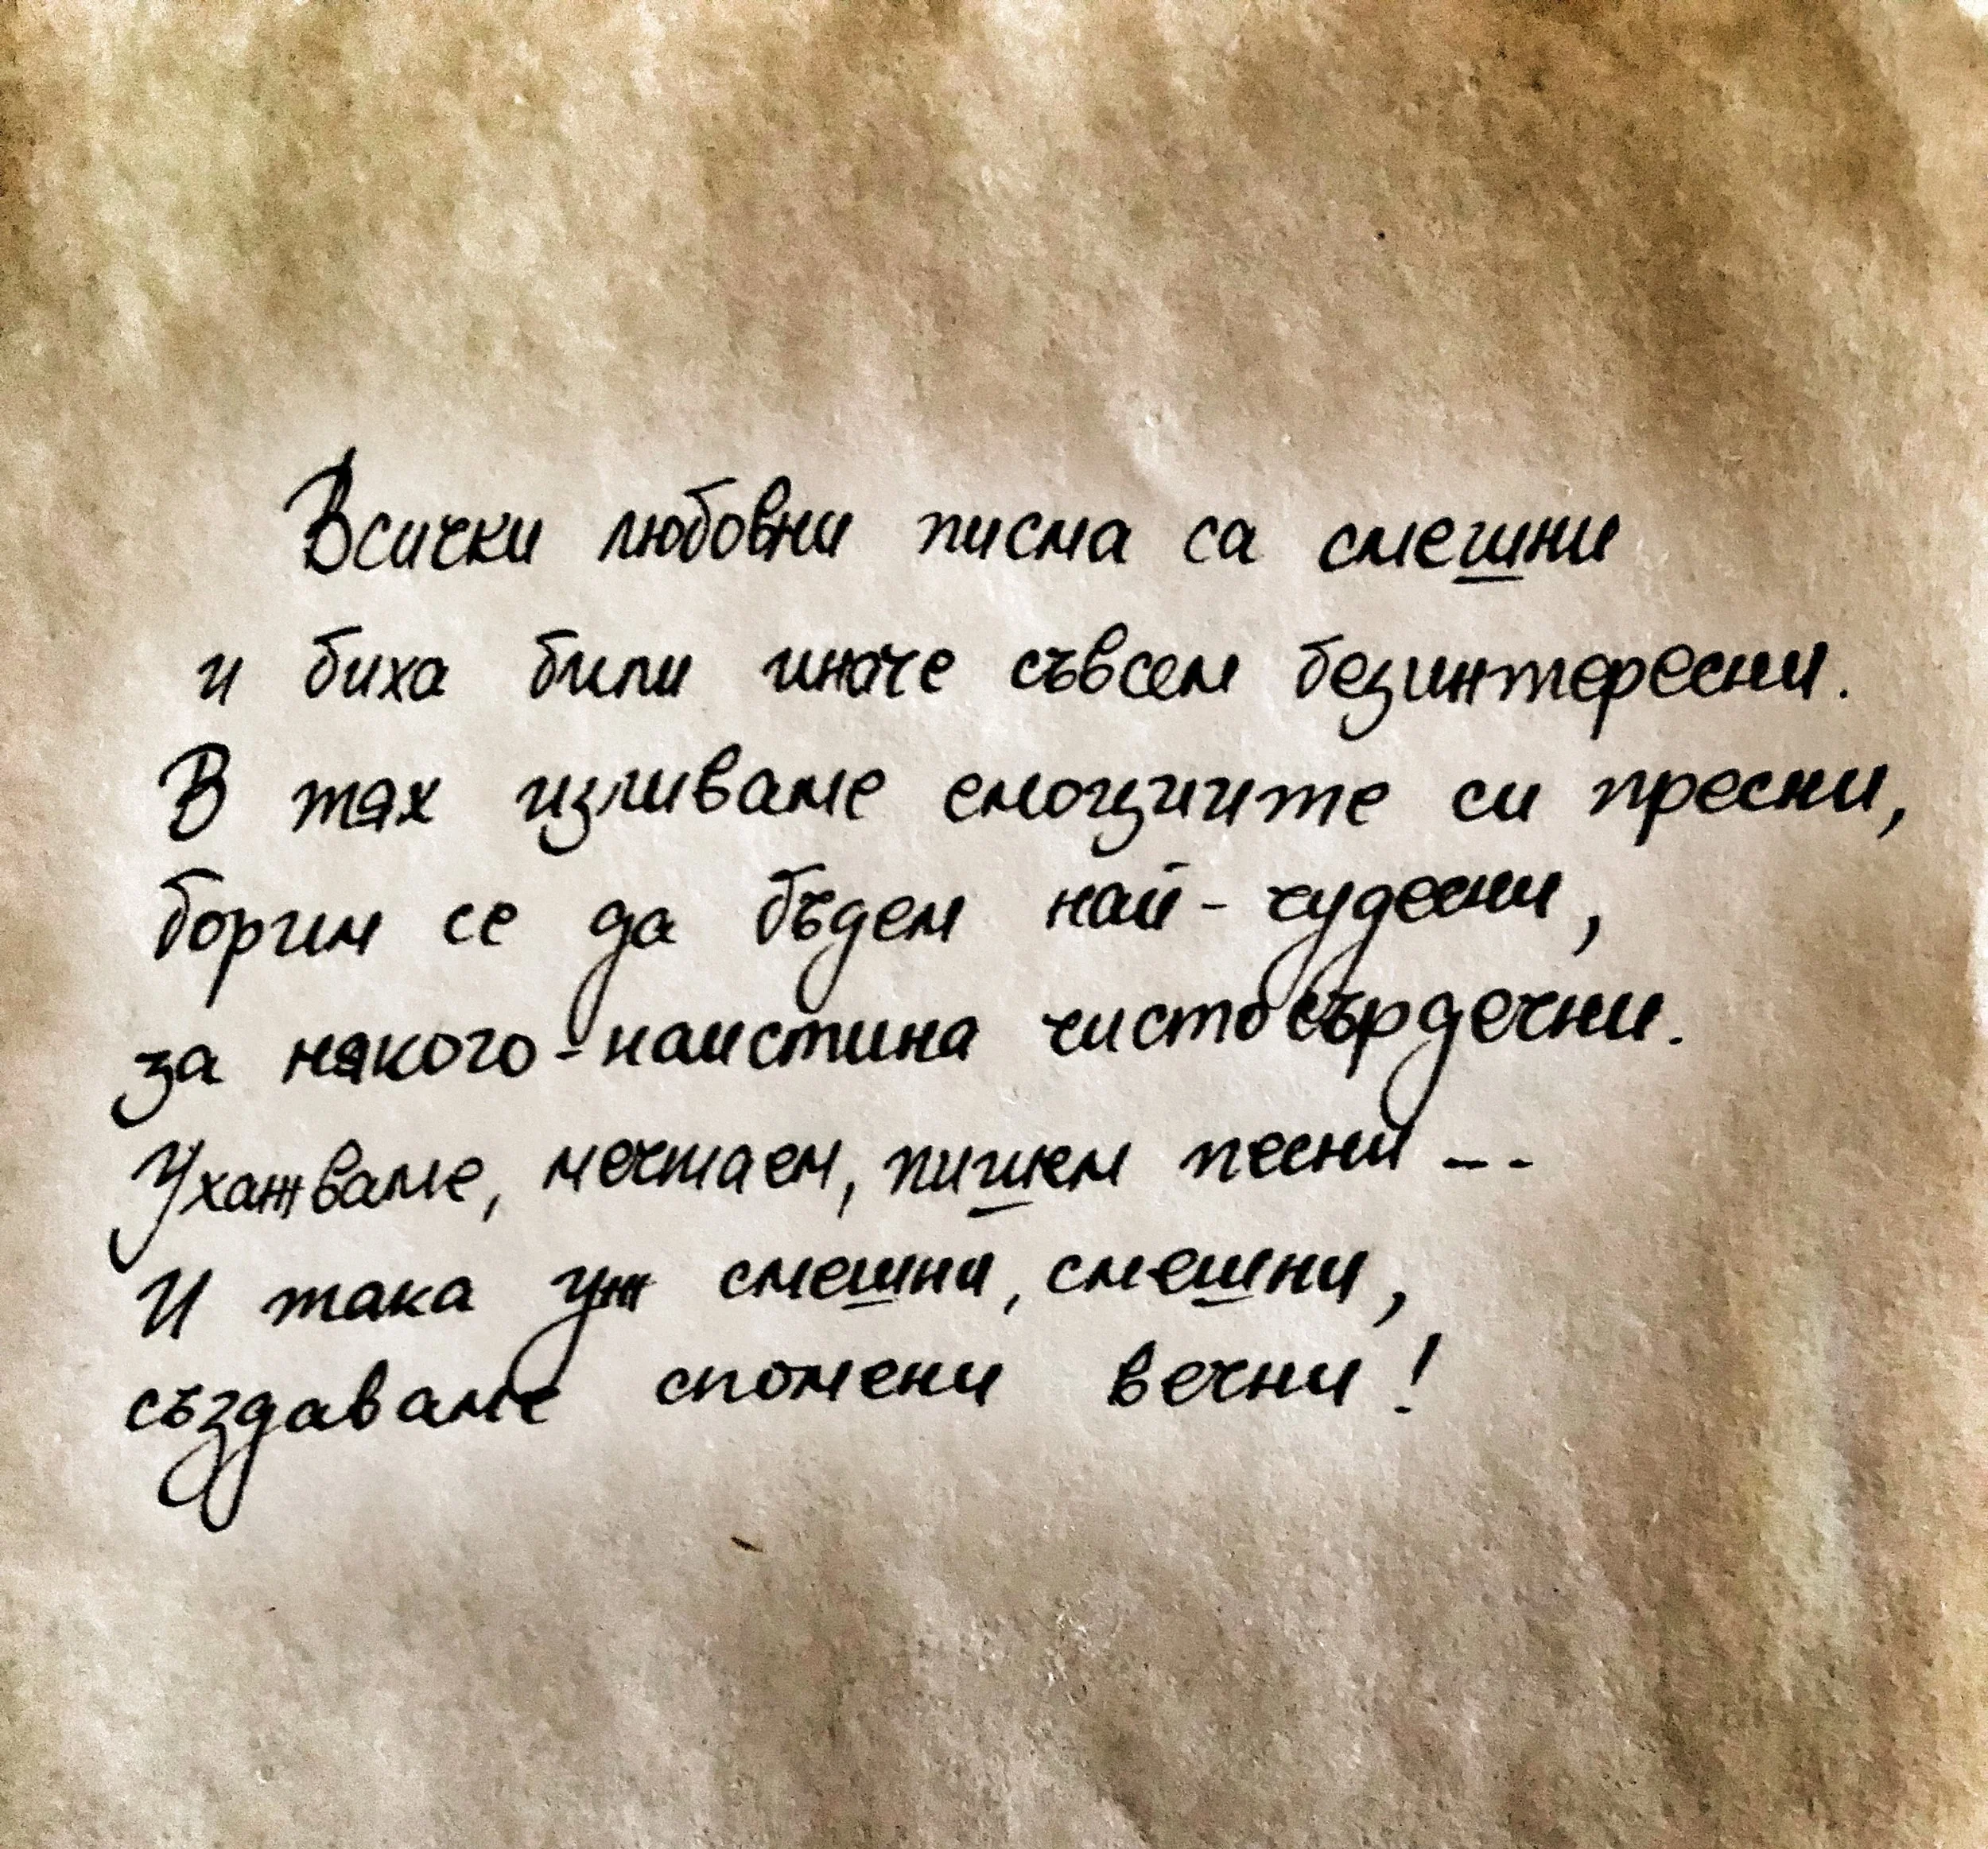 Всички любовни писма са смешни
и биха били иначе съвсем безинтересни.
В тях изливаме емоциите си пресни,
борим се да бъдем най-чудесни,
за някого-наистина чистосърдечни.
Ухажваме, мечтаем, пишем песни --
И така уж смешни, смешни,
създаваме спомени вечни!